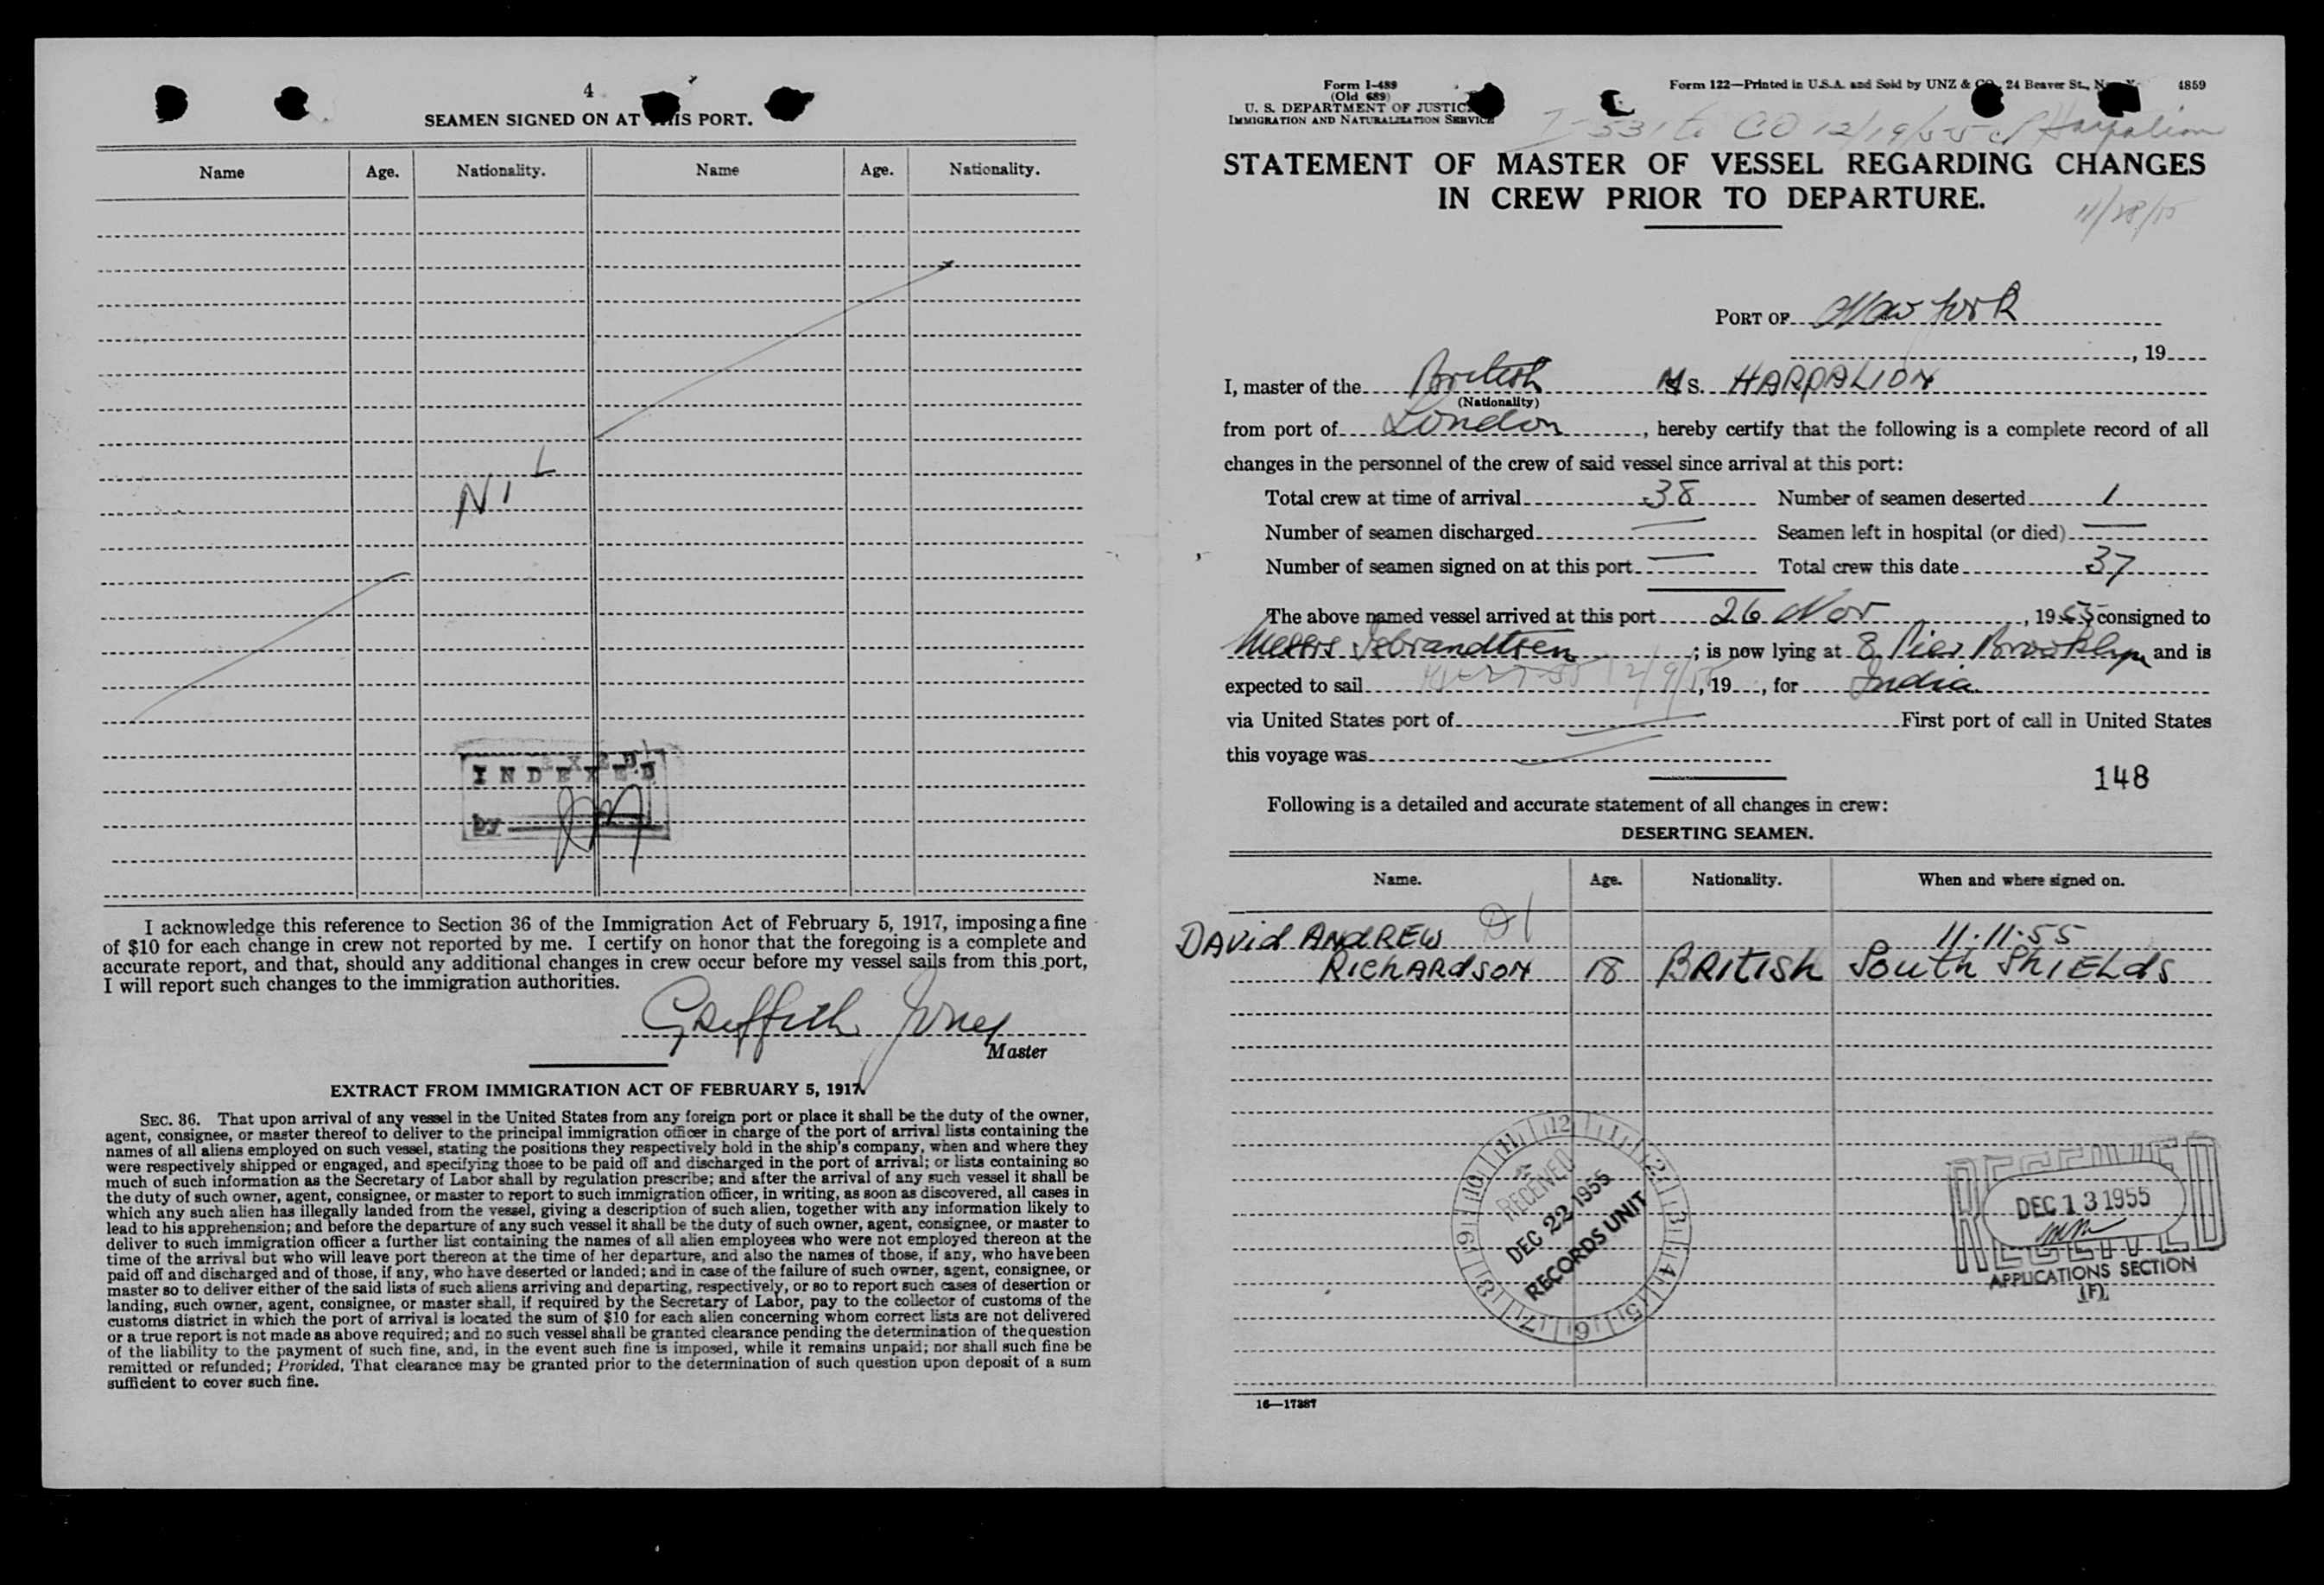 4
SEAMEN SIGNED ON AT THIS PORT.
Name Age. Nationality. Name Age. Nationality.
NIL
INDEXED
by
I acknowledge this reference to Section 36 of the Immigration Act of February 5, 1917, imposing a fine
of $10 for each change in crew not reported by me. I certify on honor that the foregoing is a complete and
accurate report, and that, should any additional changes in crew occur before my vessel sails from this port,
I will report such changes to the immigration authorities.
Griffith Jones
Master
EXTRACT FROM IMMIGRATION ACT OF FEBRUARY 5, 1917.
SEC. 36. That upon arrival of any vessel in the United States from any foreign port or place it shall be the duty of the owner,
agent, consignee, or master thereof to deliver to the principal immigration officer in charge of the port of arrival lists containing the
names of all aliens employed on such vessel, stating the positions they respectively hold in the ship's company, when and where they
were respectively shipped or engaged, and specifying those to be paid off and discharged in the port of arrival; or lists containing so
much of such information as the Secretary of Labor shall by regulation prescribe; and after the arrival of any such vessel it shall be
the duty of such owner, agent, consignee, or master to report to such immigration officer, in writing, as soon as discovered, all cases in
which any such alien has illegally landed from the vessel, giving a description of such alien, together with any information likely to
lead to his apprehension; and before the departure of any such vessel it shall be the duty of such owner, agent, consignee, or master to
deliver to such immigration officer a further list containing the names of all alien employees who were not employed thereon at the
time of the arrival but who will leave port thereon at the time of her departure, and also the names of those, if any, who have been
paid off and discharged and of those, if any, who have deserted or landed; and in case of the failure of such owner, agent, consignee, or
master so to deliver either of the said lists of such aliens arriving and departing, respectively, or so to report such cases of desertion or
landing, such owner, agent, consignee, or master shall, if required by the Secretary of Labor, pay to the collector of customs of the
customs district in which the port of arrival is located the sum of $10 for each alien concerning whom correct lists are not delivered
or a true report is not made as above required; and no such vessel shall be granted clearance pending the determination of the question
of the liability to the payment of such fine, and, in the event such fine is imposed, while it remains unpaid; nor shall such fine be
remitted or refunded; Provided, That clearance may be granted prior to the determination of such question upon deposit of a sum
sufficient to cover such fine.
Form I-489
(Old 689)
U. S. DEPARTMENT OF JUSTICE
IMMIGRATION AND NATURALIZATION SERVICE
Form 122—Printed in U.S.A. and Sold by UNZ & CO., 24 Beaver St., 4859
I-531 to CO 12/19/55 Harpalion
STATEMENT OF MASTER OF VESSEL REGARDING CHANGES
IN CREW PRIOR TO DEPARTURE.
11/28/55
PORT OF New York
, 19
I, master of the British M S. HARPALION
(Nationality)
from port of London, hereby certify that the following is a complete record of all
changes in the personnel of the crew of said vessel since arrival at this port:
Total crew at time of arrival 38 Number of seamen deserted 1
Number of seamen discharged — Seamen left in hospital (or died) —
Number of seamen signed on at this port — Total crew this date 37
The above named vessel arrived at this port 26 Nov, 1955 consigned to
Messrs Isbrandtsen; is now lying at 8 Pier Brooklyn and is
expected to sail 12/9/55, 19, for India
via United States port of — First port of call in United States
this voyage was —
148
Following is a detailed and accurate statement of all changes in crew:
DESERTING SEAMEN.
Name. Age. Nationality. When and where signed on.
DAVID ANDREW 11.11.55
RICHARDSON 18 BRITISH South SHIELDS
12 1 2 3 4 5 6 7 8 9 10 11
RECEIVED
DEC 22 1955
RECORDS UNIT
RECEIVED
DEC 13 1955
RECEIVED
APPLICATIONS SECTION
(F)
16—17387